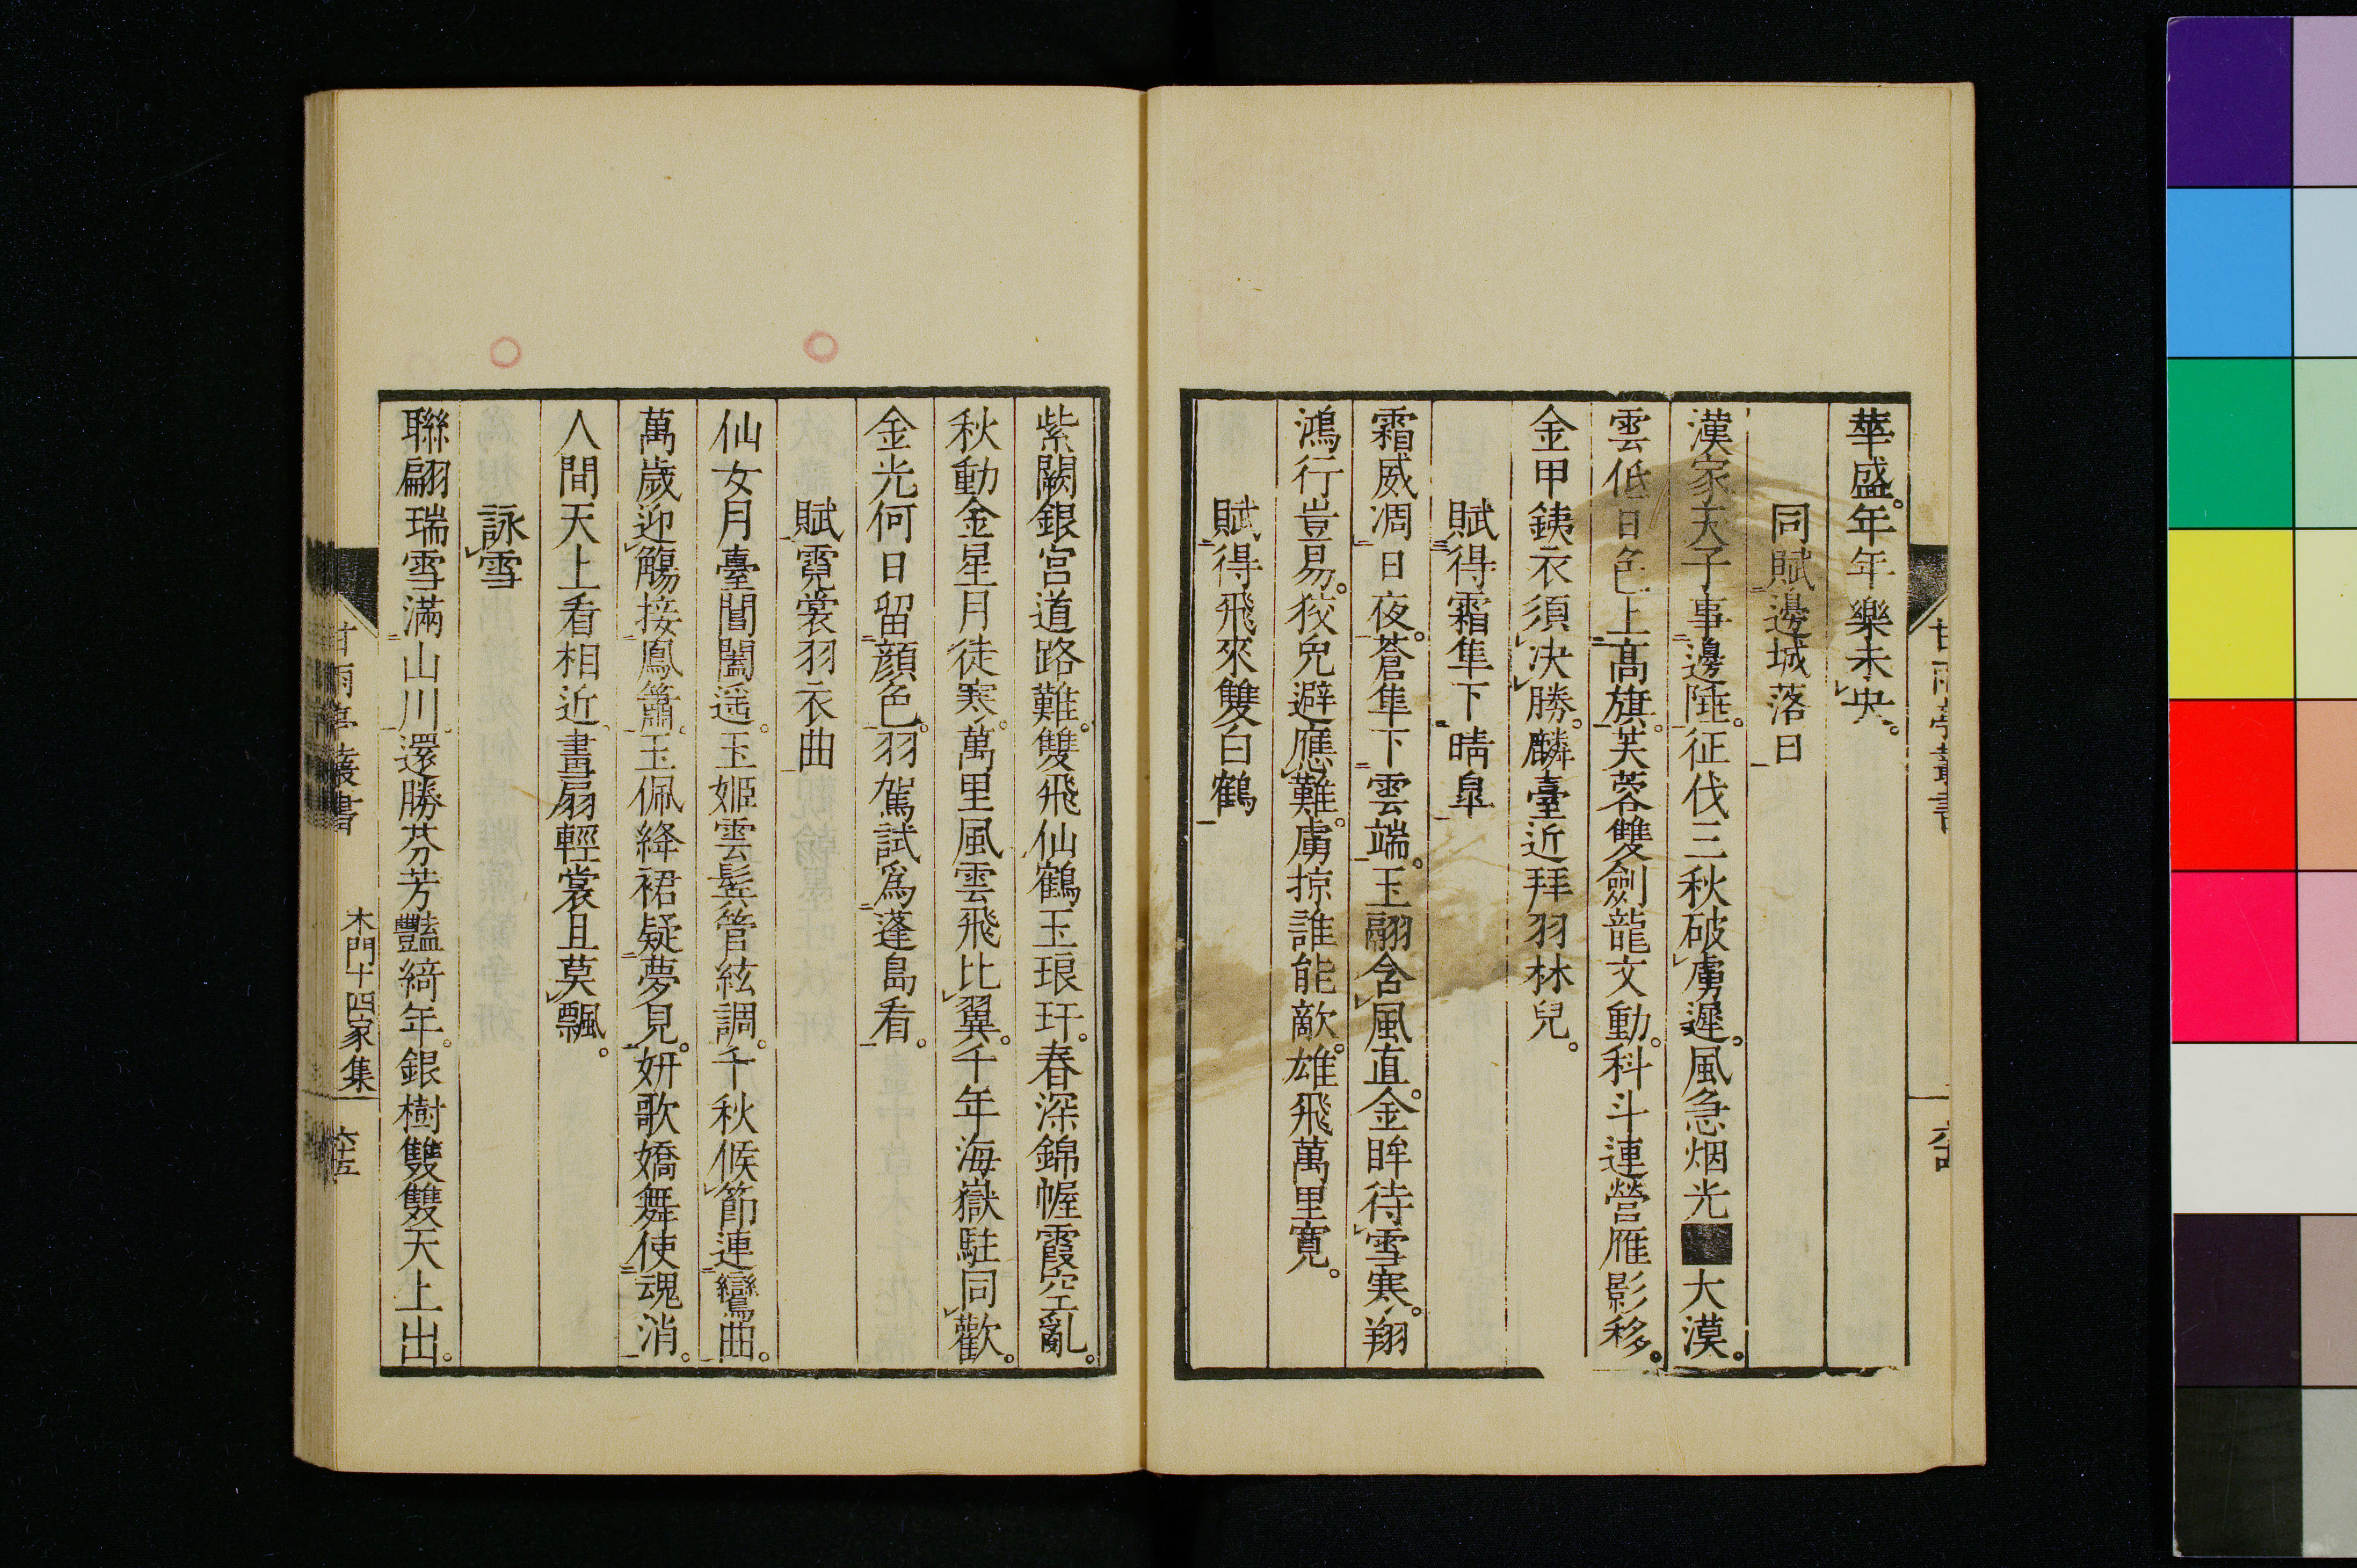 華盛。年年樂未央。
同賦邊城落日
漢家天子事邊陲。征伐三秋破虜遲。風急烟光■大漠。
雲低日色上高旗。芙蓉雙劍龍文動。科斗連營雁影移。
金甲銕衣須決勝。麟臺近拜羽林兒。
賦得霜隼下晴皐
霜威凋日夜。蒼隼下雲端。玉翮含風直。金眸待雪寒。翔
鴻行豈易。狡兔避應難。虜掠誰能敵。雄飛萬里寬。
賦得飛來雙白鶴
甘雨亭叢書
紫闕銀宮道路難。雙飛仙鶴玉琅玕。春深錦幄霞空亂。
秋動金星月徒寒。萬里風雲飛比翼。千年海嶽駐同歡。
金光何日留顏色。羽駕試爲蓬島看。
賦霓裳羽衣曲
仙女月臺閶闔遥。玉姬雲髩管絃調。千秋候節連鸞曲。
萬歲迎觴接鳳簫。玉佩絳裙疑夢見。妍歌嬌舞使魂消。
人間天上看相近。畫扇輕裳且莫飄。
詠雪
聯翩瑞雪滿山川。還勝芬芳豔綺年。銀樹雙雙天上出。
甘雨亭叢書
木門十四家集